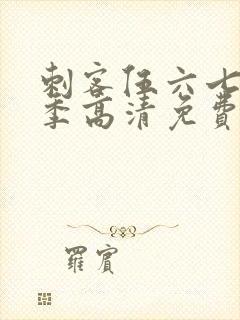 刺客伍六七
季高清免费
羅賓